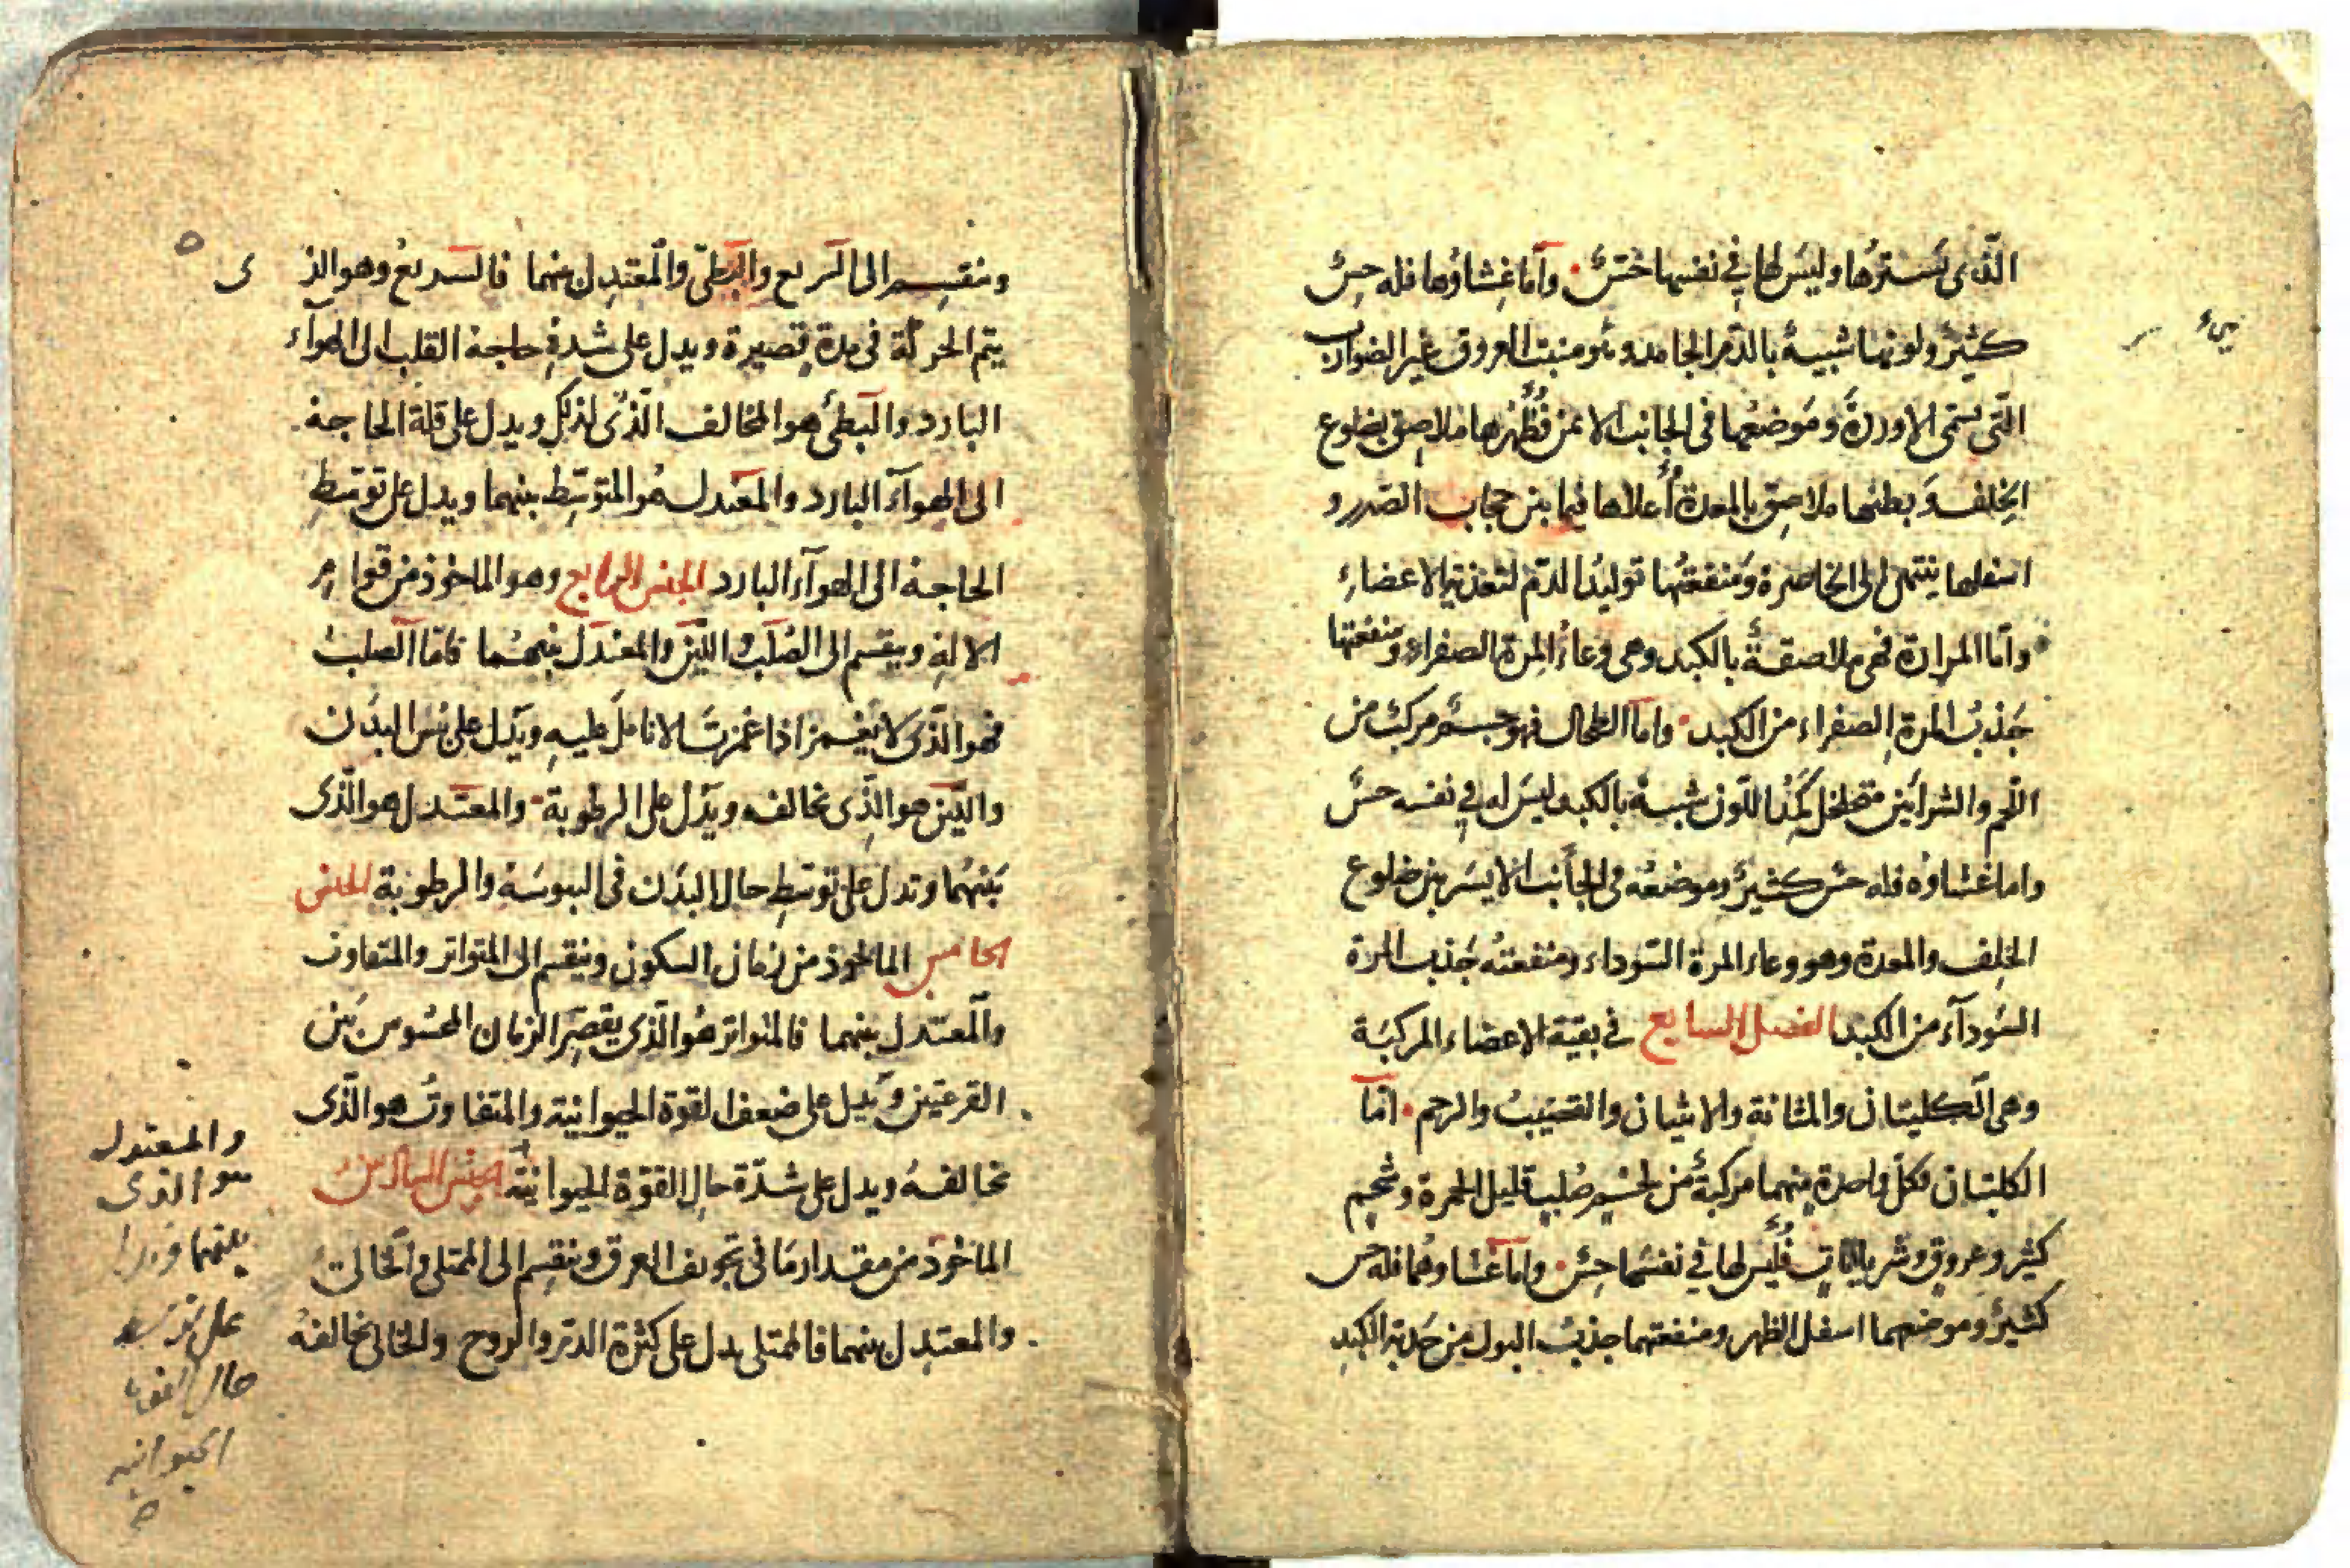 الذى يسترها وليس لها فى نفسها حس وأما غشاؤها فله حس
كثير ولونها شبيه بالدم الجامد وهو منبت العروق غير الضوارب
التى تسمى الاوردة وموضعها فى الجانب الايمن فظهرها ملاصق بضلوع
الخلف وبطنها ملاصق بالمعدة أعلاها فيما بين حجاب الصدر و
اسفلها ينتهى الى الخاصرة ومنفعتها توليد الدم لتغذية الاعضاء
وأما المرارة فهى ملاصقة بالكبد وهى وعاء المرة الصفراء ومنفعتها
جذب المرة الصفراء من الكبد وأما الطحال فهو جسم مركب من
اللحم والشرايين متخلخل كمد اللون شبيه بالكبد ليس له فى نفسه حس
واما غشاوه فله حس كثير وموضعه فى الجانب الايسر بين ضلوع
الخلف والمعدة وهو وعاء المرة السوداء ومنفعته جذب المرة
السوداء من الكبد الفصل السابع فى بقية الاعضاء المركبة
وهى الكليتان والمثانة والانثيان والقضيب والرحم اما
الكليتان فكل واحدة منهما مركبة من لحم صلب قليل الحمرة وشحم
كثير وعروق وشريانات فليس لها فى نفسها حس واما غشاوهما فله حس
كثير وموضعهما اسفل الظهر ومنفعتهما جذب البول من حدبة الكبد
وينقسم الى السريع والبطئ والمعتدل بينهما فالسريع وهو الذ ى
يتم الحركة فى مدة قصيرة ويدل على شدة حاجة القلب الى الهواء
البارد والبطئ هو المخالف الذى لذلك ويدل على قلة الحاجة
الى الهواء البارد والمعتدل هو المتوسط بينهما ويدل على توسط
الحاجة الى الهواء البارد الجنس الرابع وهو الماخوذ من قوام
الالة وينقسم الى الصلب واللين والمعتدل بينهما فاما الصلب
فهو الذى لا ينغمز اذا غمزت الانامل عليه ويدل على يبس البدن
واللين هو الذى يخالفه ويدل على الرطوبة والمعتدل هو الذى
بينهما وتدل على توسط حال البدن فى اليبوسة والرطوبة الجنس
الخامس الماخوذ من زمان السكون وينقسم الى المتواتر والمتفاوت
والمعتدل بينهما فالمتواتر هو الذى يقصر الزمان المحسوس بين
القرعتين ويدل على ضعف القوة الحيوانية والمتفاوت هو الذى
يخالفه ويدل على شدة حال القوة الحيوانية الجنس السادس
الماخوذ من مقدار ما فى تجويف العرق وينقسم الى الممتلى والخالى
والمعتدل بينهما فالممتلى يدل على كثرة الدم والروح والخالى يخالفه
والمعتدل
هو الذى
بينهما ويدل
على توسط
حال القوة
الحيوانية